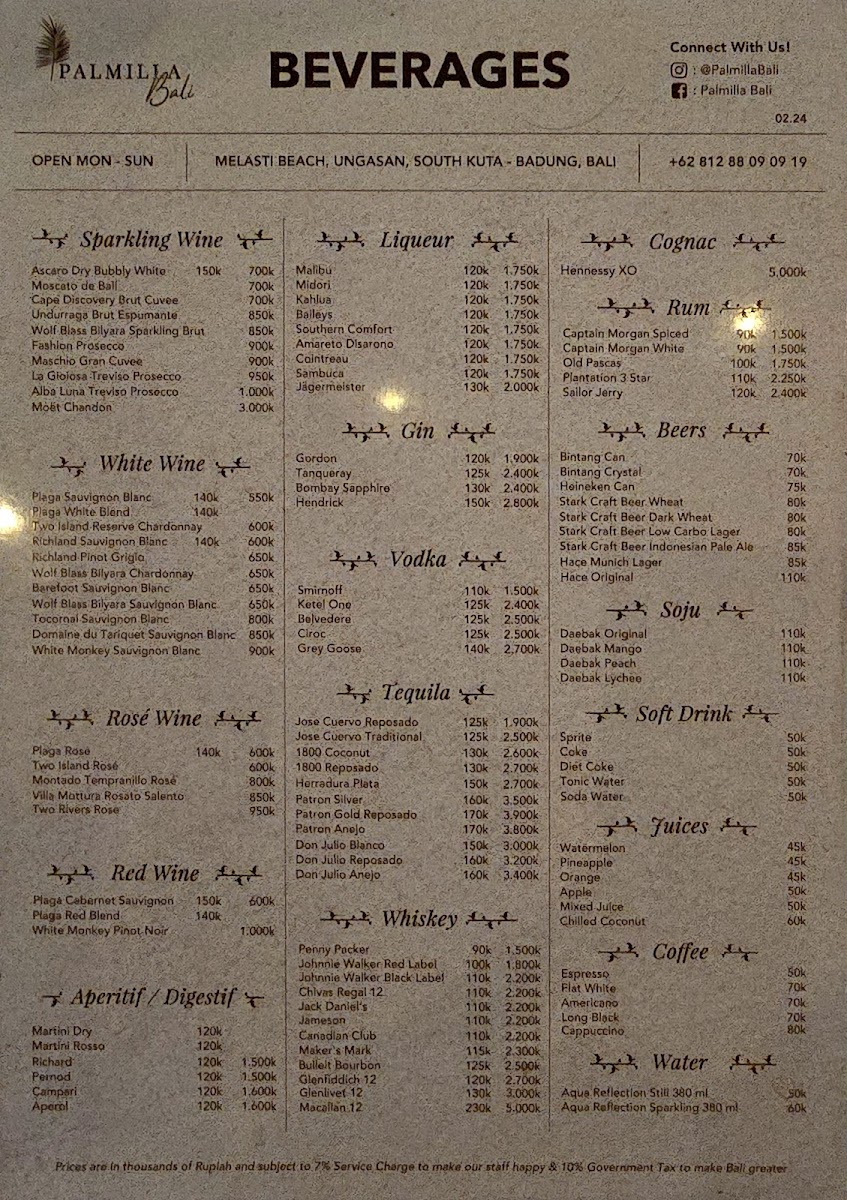 PALMILLA
Bali
BEVERAGES
Connect With Us!
: @PalmillaBali
: Palmilla Bali
02.24
OPEN MON - SUN
MELASTI BEACH, UNGASAN, SOUTH KUTA - BADUNG, BALI
+62 812 88 09 09 19
Sparkling Wine
Ascaro Dry Bubbly White 150k 700k
Moscato de Bali 700k
Cape Discovery Brut Cuvee 700k
Undurraga Brut Espumante 850k
Wolf Blass Bilyara Sparkling Brut 850k
Fashion Prosecco 900k
Maschio Gran Cuvee 900k
La Gioiosa Treviso Prosecco 950k
Alba Luna Treviso Prosecco 1.000k
Moët Chandon 3.000k
White Wine
Plaga Sauvignon Blanc 140k 550k
Plaga White Blend 140k
Two Island Reserve Chardonnay 600k
Richland Sauvignon Blanc 140k 600k
Richland Pinot Grigio 650k
Wolf Blass Bilyara Chardonnay 650k
Barefoot Sauvignon Blanc 650k
Wolf Blass Bilyara Sauvignon Blanc 650k
Tocornal Sauvignon Blanc 800k
Domaine du Tariquet Sauvignon Blanc 850k
White Monkey Sauvignon Blanc 900k
Rosé Wine
Plaga Rosé 140k 600k
Two Island Rosé 600k
Montado Tempranillo Rosé 800k
Villa Mottura Rosato Salento 850k
Two Rivers Rosé 950k
Red Wine
Plaga Cabernet Sauvignon 150k 600k
Plaga Red Blend 140k
White Monkey Pinot Noir 1.000k
Aperitif / Digestif
Martini Dry 120k
Martini Rosso 120k
Richard 120k 1.500k
Pernod 120k 1.500k
Campari 120k 1.600k
Aperol 120k 1.600k
Liqueur
Malibu 120k 1.750k
Midori 120k 1.750k
Kahlua 120k 1.750k
Baileys 120k 1.750k
Southern Comfort 120k 1.750k
Amareto Disarono 120k 1.750k
Cointreau 120k 1.750k
Sambuca 120k 1.750k
Jägermeister 130k 2.000k
Gin
Gordon 120k 1.900k
Tanqueray 125k 2.400k
Bombay Sapphire 130k 2.400k
Hendrick 150k 2.800k
Vodka
Smirnoff 110k 1.500k
Ketel One 125k 2.400k
Belvedere 125k 2.500k
Ciroc 125k 2.500k
Grey Goose 140k 2.700k
Tequila
Jose Cuervo Reposado 125k 1.900k
Jose Cuervo Traditional 125k 2.500k
1800 Coconut 130k 2.600k
1800 Reposado 130k 2.700k
Herradura Plata 150k 2.700k
Patron Silver 160k 3.500k
Patron Gold Reposado 170k 3.900k
Patron Anejo 170k 3.800k
Don Julio Blanco 150k 3.000k
Don Julio Reposado 160k 3.200k
Don Julio Anejo 160k 3.400k
Whiskey
Penny Packer 90k 1.500k
Johnnie Walker Red Label 100k 1.800k
Johnnie Walker Black Label 110k 2.200k
Chivas Regal 12 110k 2.200k
Jack Daniel's 110k 2.200k
Jameson 110k 2.200k
Canadian Club 110k 2.200k
Maker's Mark 115k 2.300k
Bulleit Bourbon 125k 2.500k
Glenfiddich 12 120k 2.700k
Glenlivet 12 130k 3.000k
Macallan 12 230k 5.000k
Cognac
Hennessy XO 5.000k
Rum
Captain Morgan Spiced 90k 1.500k
Captain Morgan White 90k 1.500k
Old Pascas 100k 1.750k
Plantation 3 Star 110k 2.250k
Sailor Jerry 120k 2.400k
Beers
Bintang Can 70k
Bintang Crystal 70k
Heineken Can 75k
Stark Craft Beer Wheat 80k
Stark Craft Beer Dark Wheat 80k
Stark Craft Beer Low Carbo Lager 80k
Stark Craft Beer Indonesian Pale Ale 85k
Hace Munich Lager 85k
Hace Original 110k
Soju
Daebak Original 110k
Daebak Mango 110k
Daebak Peach 110k
Daebak Lychee 110k
Soft Drink
Sprite 50k
Coke 50k
Diet Coke 50k
Tonic Water 50k
Soda Water 50k
Juices
Watermelon 45k
Pineapple 45k
Orange 45k
Apple 50k
Mixed Juice 50k
Chilled Coconut 60k
Coffee
Espresso 50k
Flat White 70k
Americano 70k
Long Black 70k
Cappuccino 80k
Water
Aqua Reflection Still 380 ml 50k
Aqua Reflection Sparkling 380 ml 60k
Prices are in thousands of Rupiah and subject to 7% Service Charge to make our staff happy & 10% Government Tax to make Bali greater